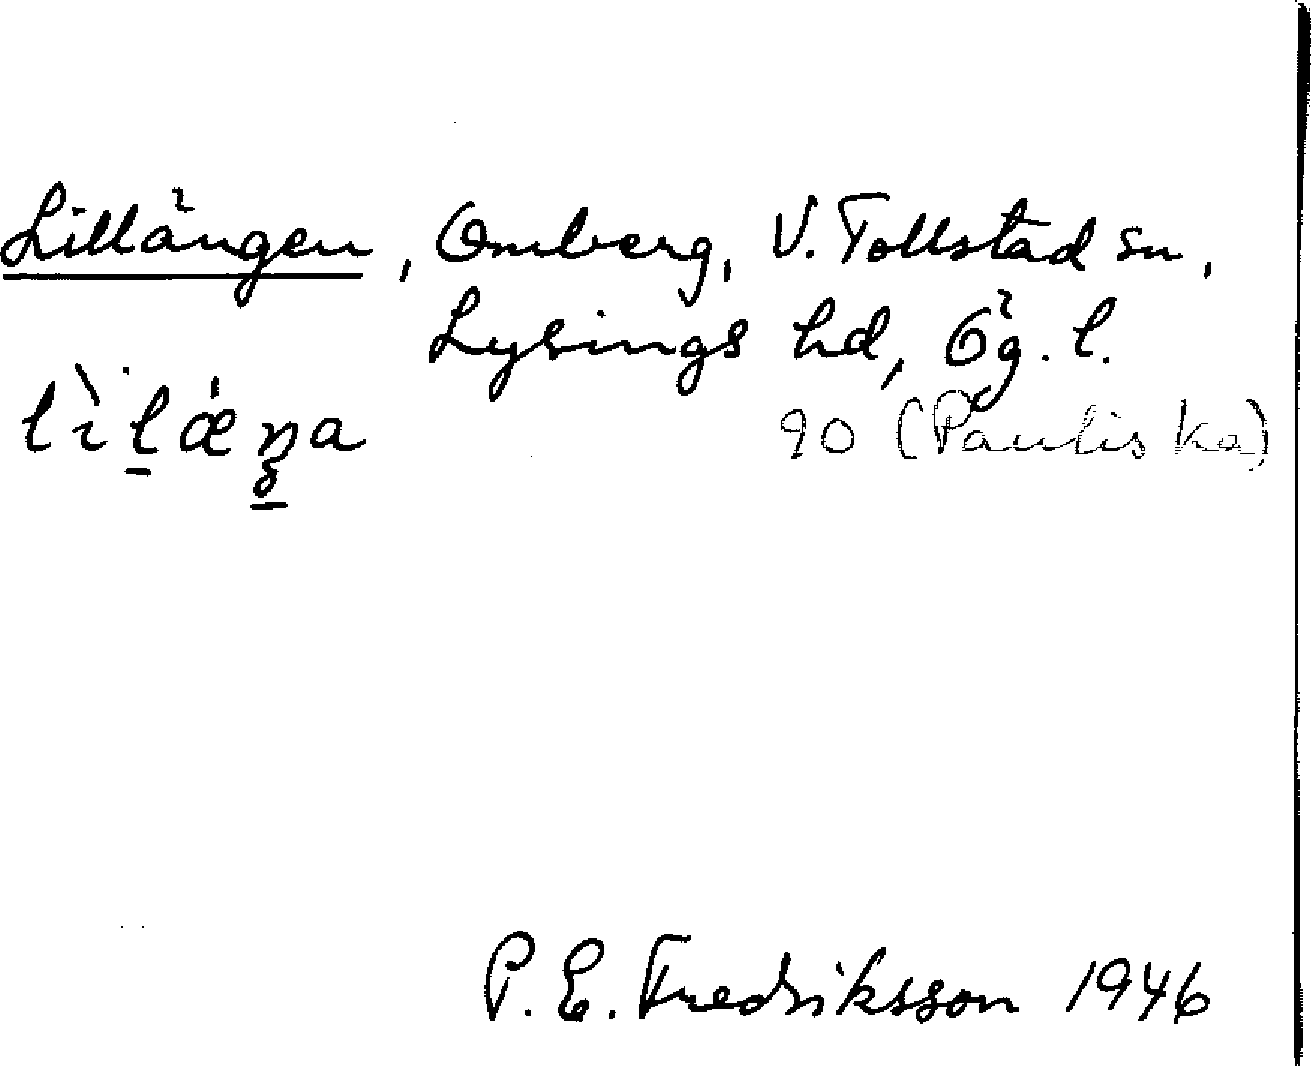 Lillängen, Omberg, V. Tollstad sn,
Lysings hd, Ög. l.
lìl̠ǽŋ̠a
90 (Pauliska)
P. E. Fredriksson 1946